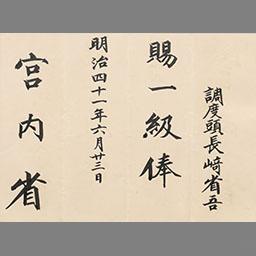 調度頭長﨑省吾
賜一級俸
明治四十一年六月廿三日
宮内省